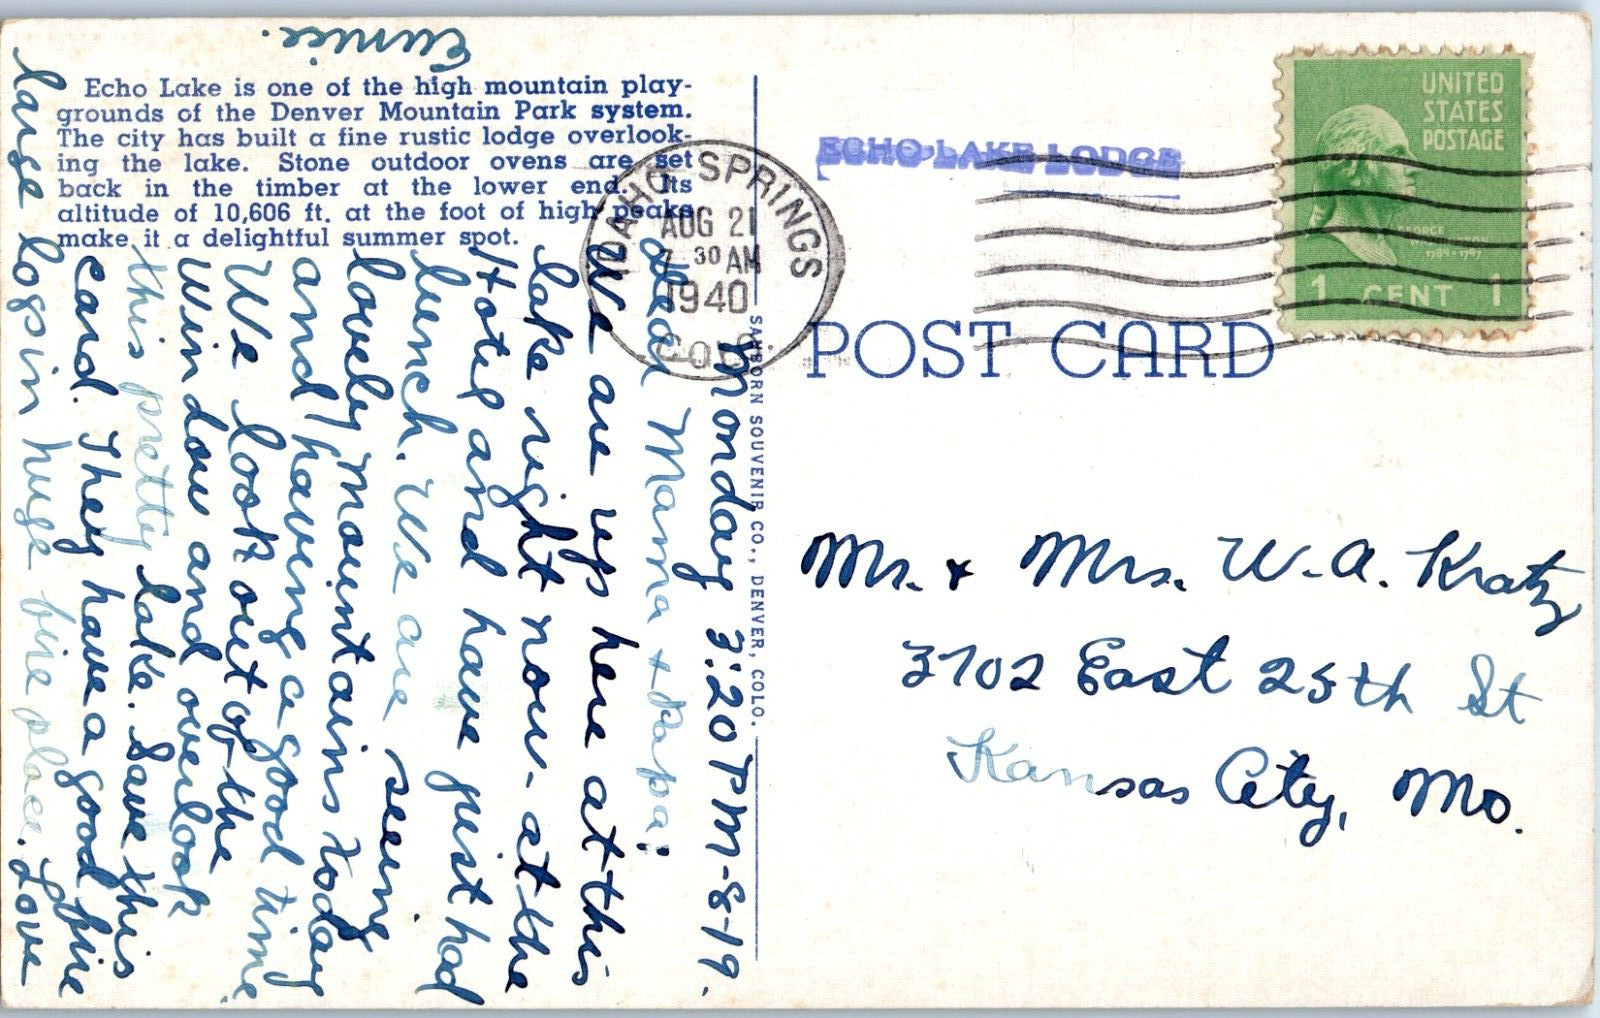 Echo Lake is one of the high mountain play-
grounds of the Denver Mountain Park system.
The city has built a fine rustic lodge overlook-
ing the lake. Stone outdoor ovens are set
back in the timber at the lower end. Its
altitude of 10,606 ft. at the foot of high peaks
make it a delightful summer spot.
Monday 3:20 PM-8-19.
Dear Mama & Papa:
We are up here at this
lake right now- at the
Hotel and have just had
lunch. We are seeing
lovely mountains today
and having a good time
We look out of the
window and overlook
this pretty lake. Save this
card. They have a good fire
large logs in huge fire place. Love
Eunice.
SANBORN SOUVENIR CO., DENVER, COLO.
IDAHO SPRINGS
AUG 21
7 30 AM
1940
COLO.
ECHO LAKE LODGE
UNITED
STATES
POSTAGE
GEORGE
WASHINGTON
1789-1797
1 CENT 1
POST CARD
Mr. & Mrs. W. A. Kratz
3702 East 25th St
Kansas City, Mo.